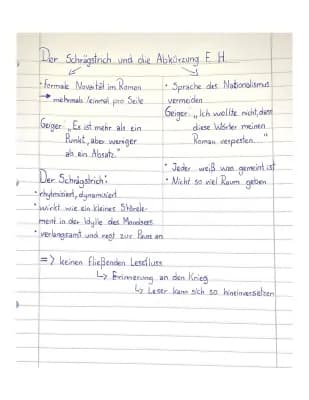 Der Schrägstrich und die Abkürzung F. H.
· formale Novität im Roman
→ mehrmals/einmal pro Seite
Geiger: „Es ist mehr als ein
Punkt, aber weniger
als ein Absatz."
Der Schrägstrich:
· rhytmisiert, dynamisiert
· wirkt wie ein kleines Störele-
ment in der Idylle des Mondsees
· verlangsamt und regt zur Pause an
· Sprache des Nationalismus
vermeiden
Geiger: „Ich wollte nicht, dass
diese Wörter meinen
Roman verpesten."
· Jeder weiß was gemeint ist
· Nicht so viel Raum geben
=> keinen fließenden Lesefluss
↳ Erinnerung an den Krieg
↳ Leser kann sich so hineinversetzen